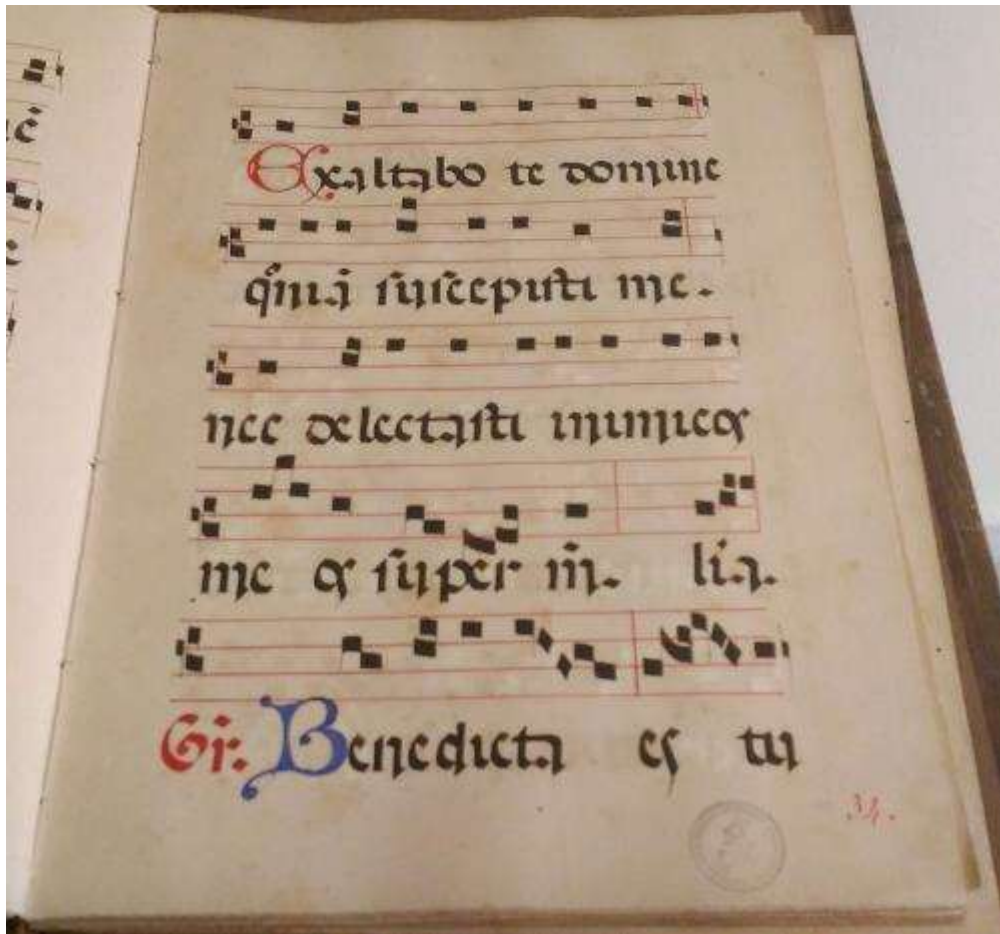 Exaltabo te domine
q̄m̄ suscepisti me.
nec delectasti inimicos
me os super m̄. lia.
Gr̄. Benedicta es tu
34.